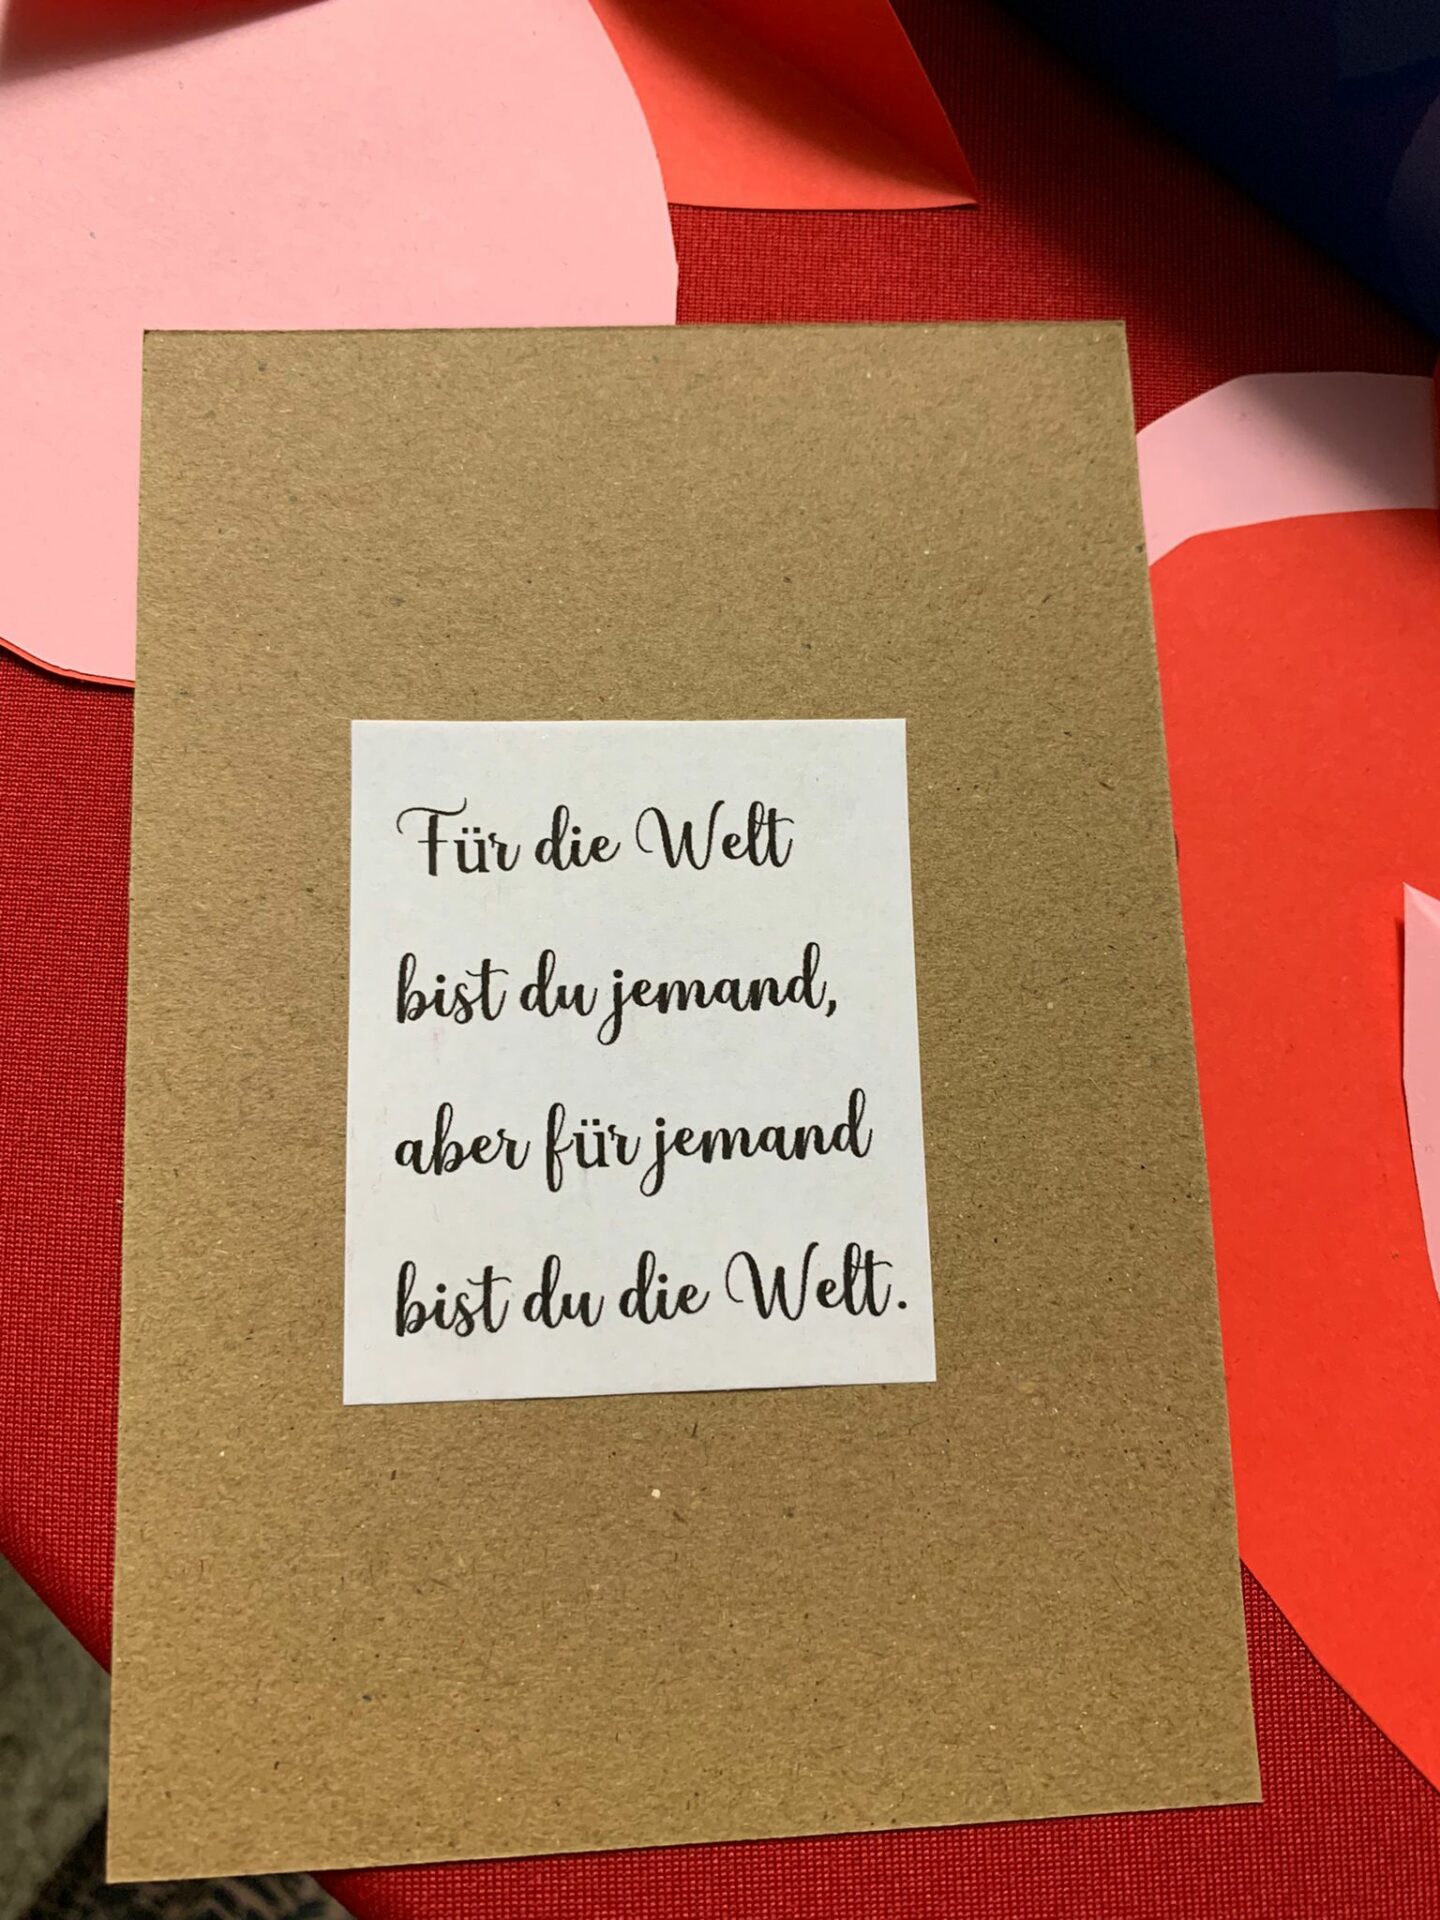 Für die Welt
bist du jemand,
aber für jemand
bist du die Welt.